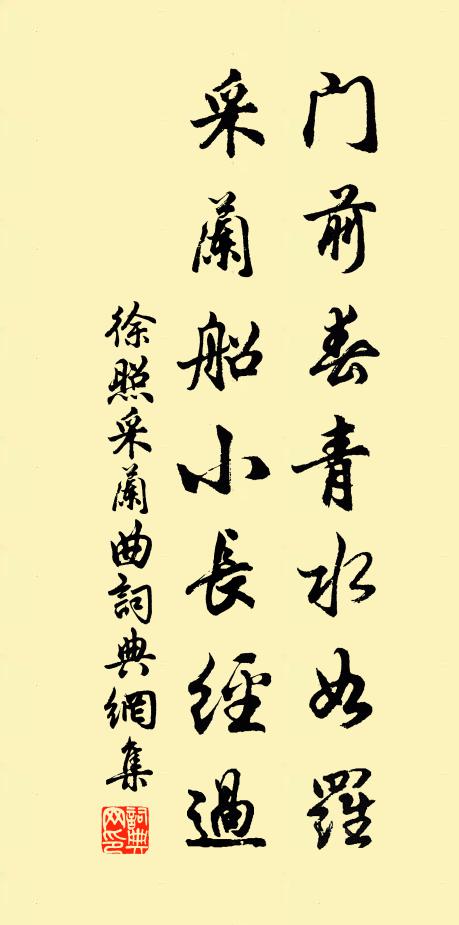 門前春青水如羅
采蘭船小長經過
徐照采蘭曲詞典網集
詞典网印